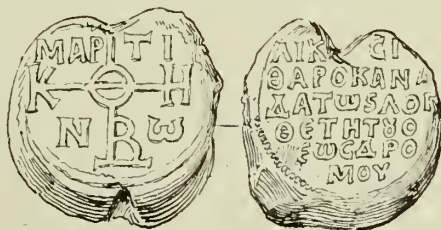 ΜΑΡ ΤΙ
Κ Θ Η
Ν Β ω
ΛΙΚ CΙ
ΘΑΡΟΚΑΝΔ
ΔΑΤωSΛΟΓ
ΘΕΤΗΤȣΟ
ΞωCΔΡΟ
ΜΟΥ